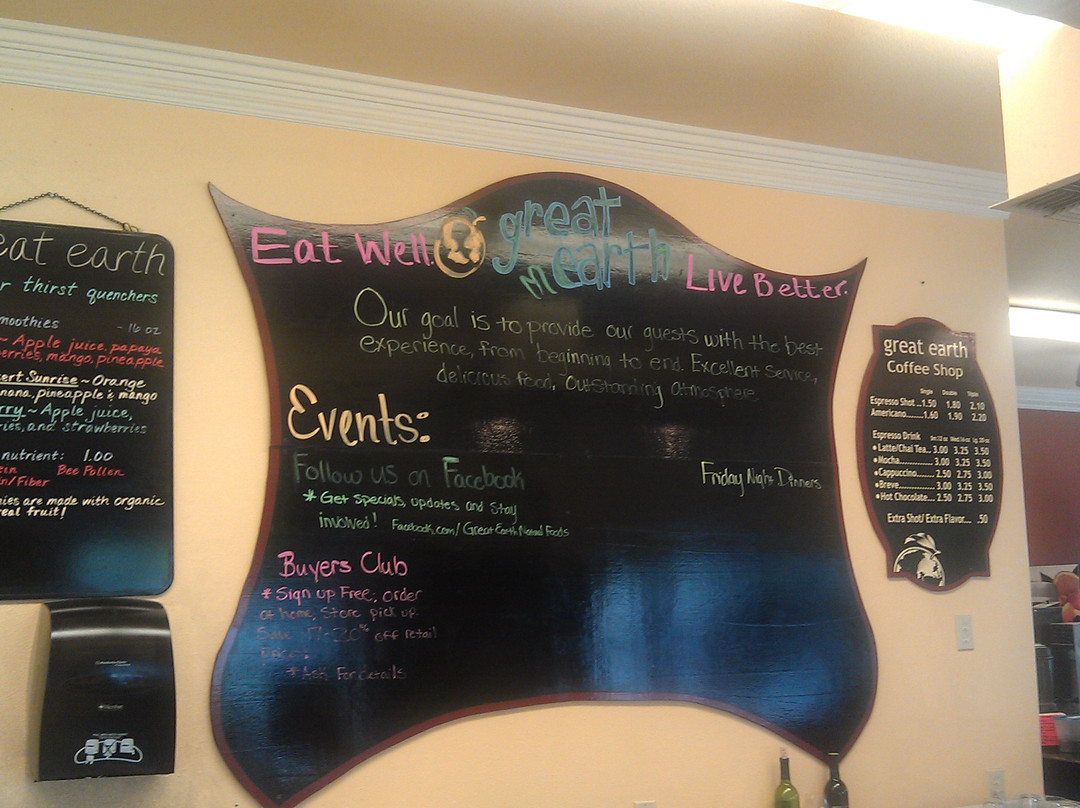 eat earth
r thirst quenchers
moothies - 16 oz
~ Apple juice, papaya
erries, mango, pineapple
ert Sunrise ~ Orange
nana, pineapple & mango
rry ~ Apple juice,
ries, and strawberries
nutrient: 1.00
ein Bee Pollen
n/Fiber
ies are made with organic
real fruit!
Eat Well. great earth Live Better.
Our goal is to provide our guests with the best
experience, from beginning to end. Excellent Service,
delicious food, Outstanding Atmosphere
Events:
Follow us on Facebook
* Get specials, updates and stay
involved! Facebook.com/GreatEarthNaturalFoods
Friday Night Dinners
Buyers Club
* Sign up Free, order
at home, Store pick up.
Save 17-20% off retail
Prices
* Ask For details
great earth
Coffee Shop
Single Double Triple
Espresso Shot..1.50 1.80 2.10
Americano........1.60 1.90 2.20
Espresso Drink Sm.12 oz Med.16 oz Lg. 20 oz
•Latte/Chai Tea.. 3.00 3.25 3.50
•Mocha................ 3.00 3.25 3.50
•Cappuccino...... 2.50 2.75 3.00
•Breve.................. 3.00 3.25 3.50
•Hot Chocolate.... 2.50 2.75 3.00
Extra Shot/ Extra Flavor.... .50